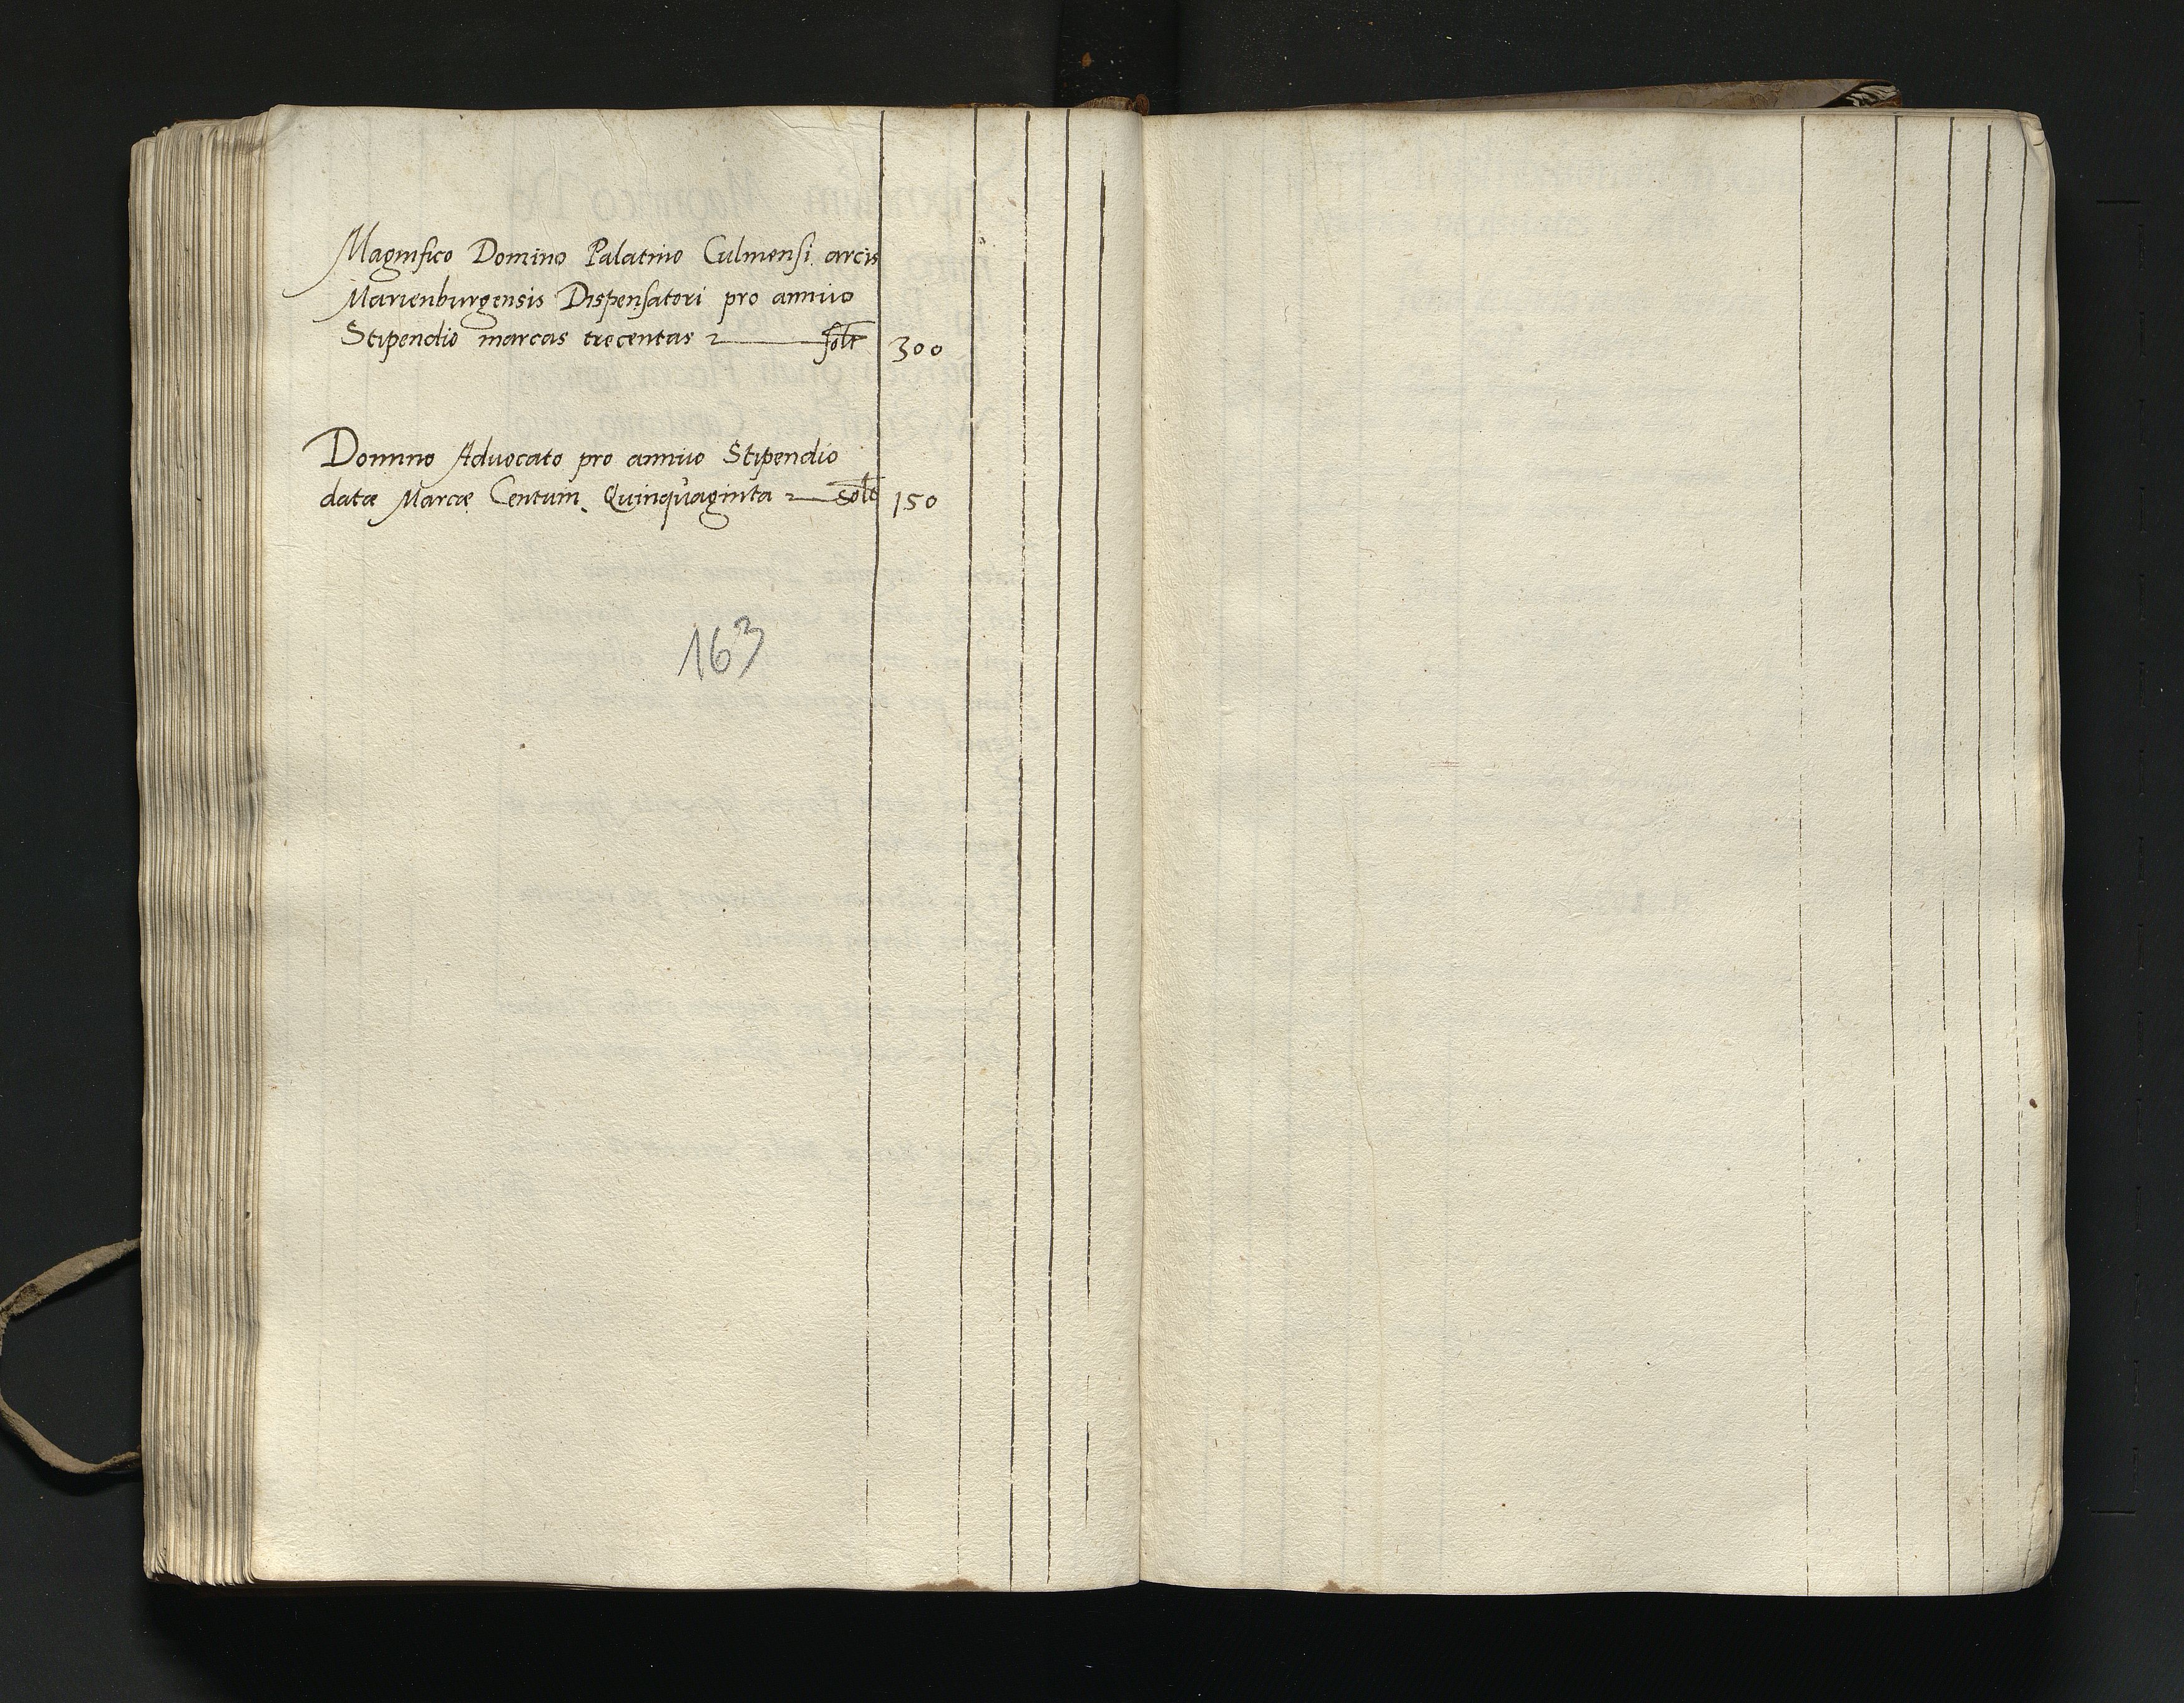 Magnifico Domino Palatino Culmensi arcis
Marienburgensis Dispensatori pro annuo
Stipendio marcas trecentas solt 300
Domino Advocato pro annuo Stipendio
datæ Marcæ Centum Quinquaginta solt 150
163